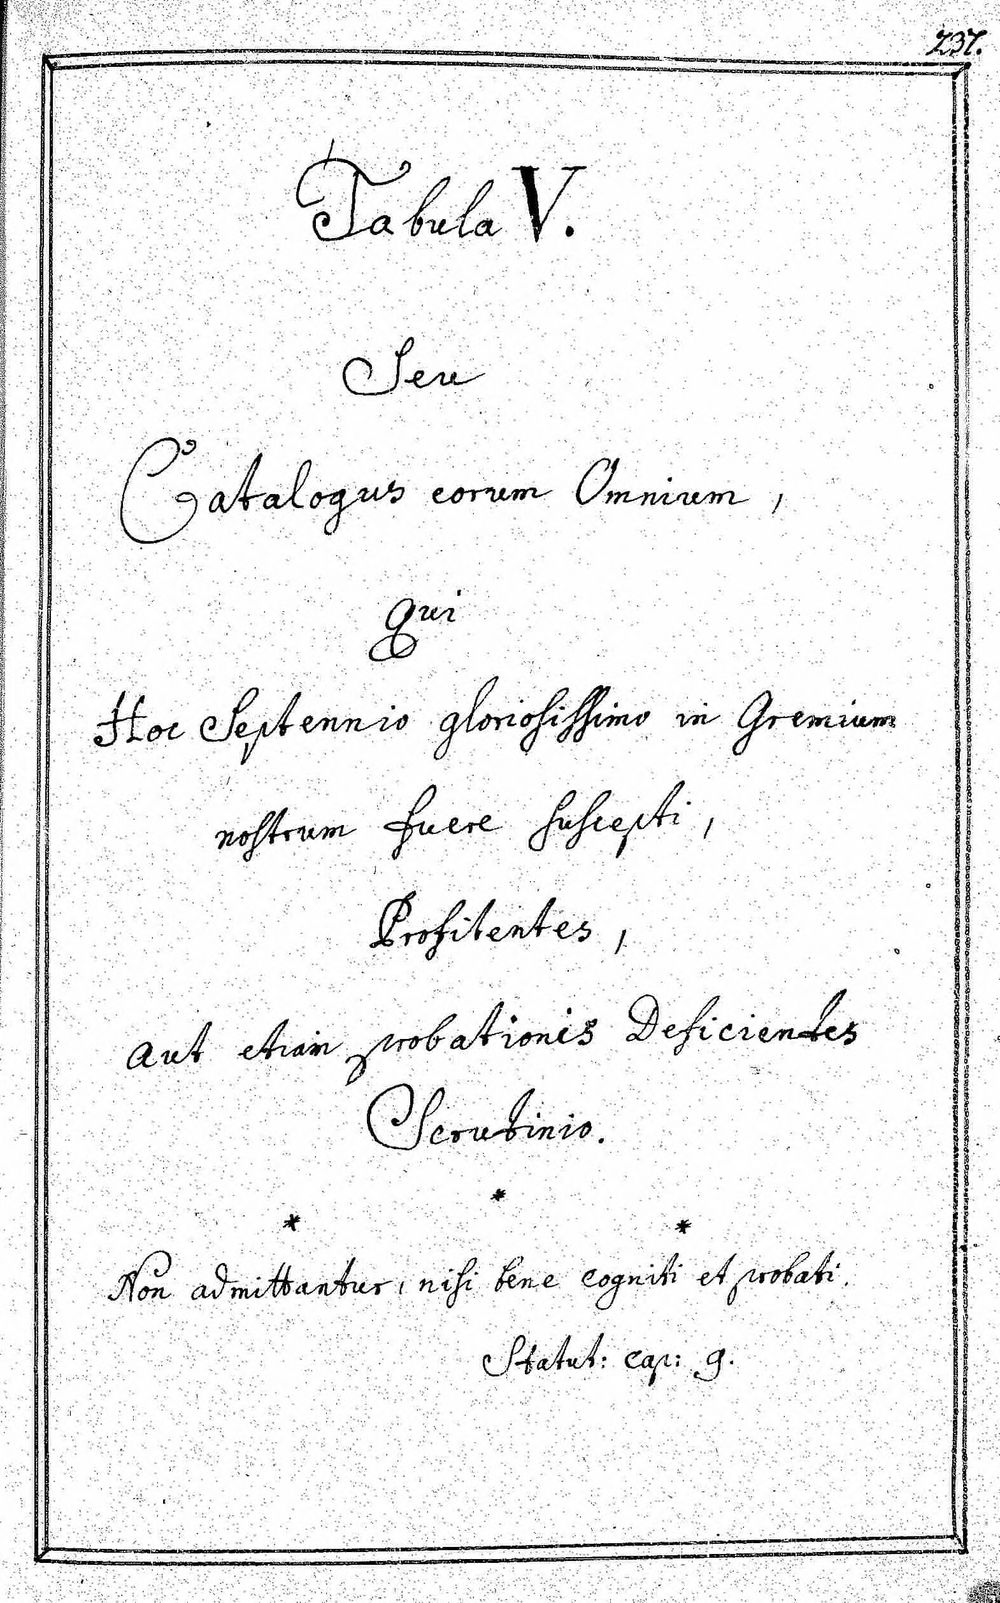 237.
Tabula V.
Seu
Catalogus eorum Omnium,
qui
Hoc Septennio gloriosissimo in Gremium
nostrum fuere suscepti,
Profitentes,
aut etiam probationis Deficientes
Scrutinio.
* * *
Non admittantur, nisi bene cogniti et probati.
Statut: cap: 9.